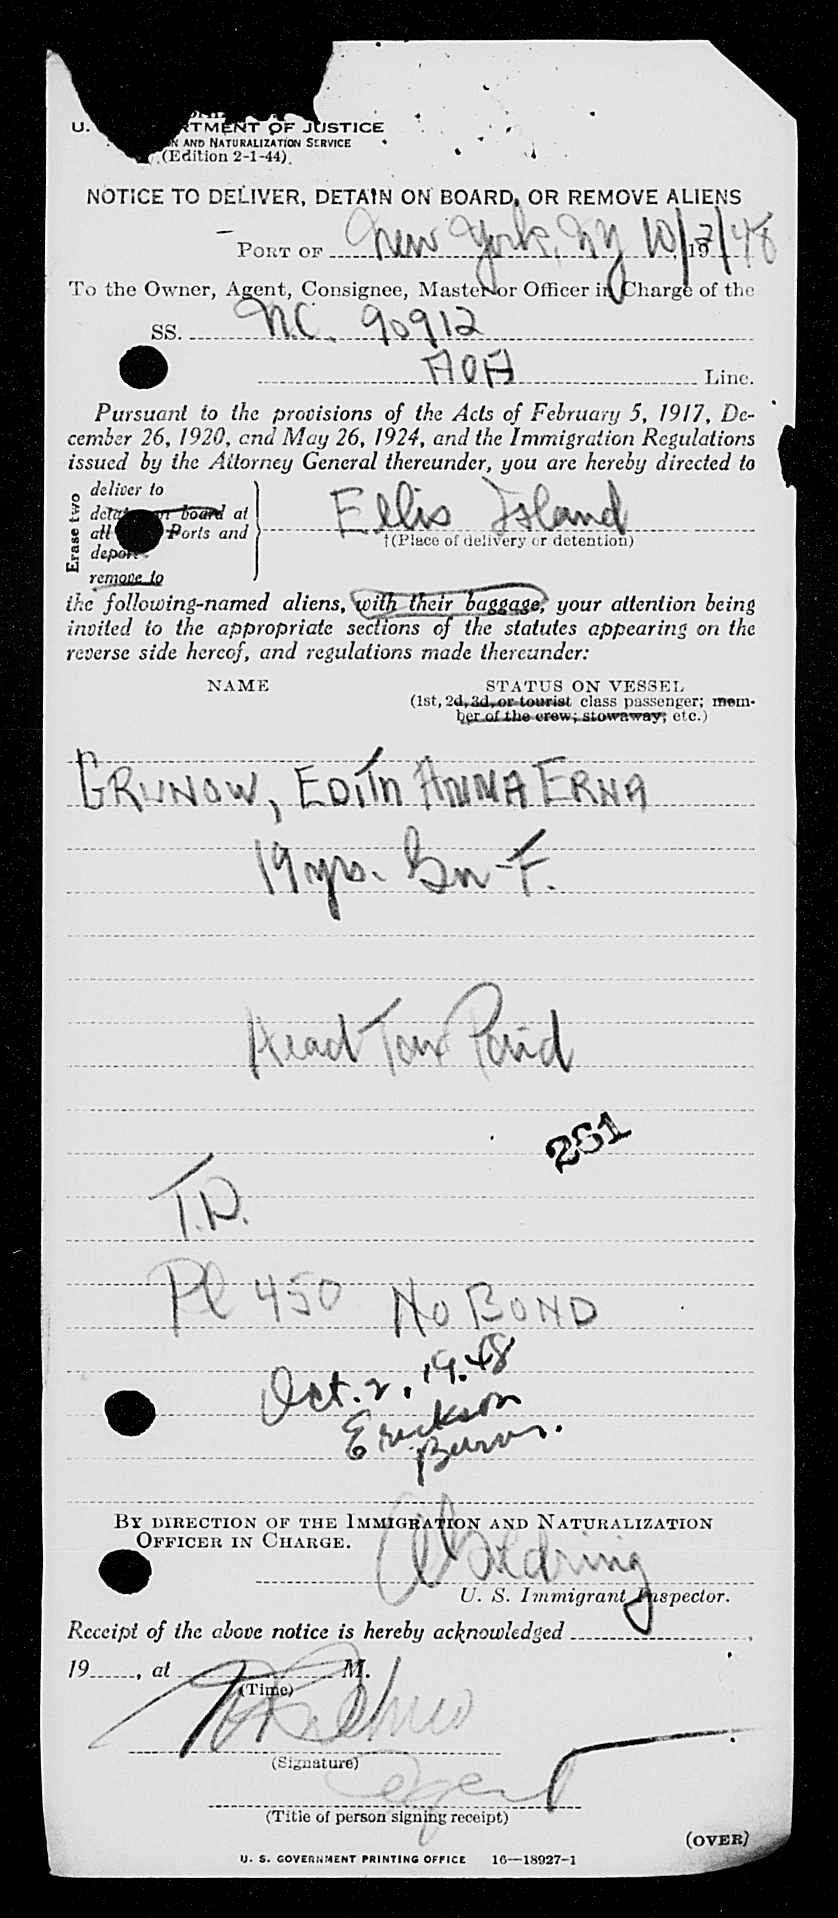 U. RTMENT OF JUSTICE
N AND NATURALIZATION SERVICE
(Edition 2-1-44)
NOTICE TO DELIVER, DETAIN ON BOARD, OR REMOVE ALIENS
PORT OF New York, NY 10/2/48 19
To the Owner, Agent, Consignee, Master or Officer in Charge of the
SS. N.C. 90912
AOA Line.
Pursuant to the provisions of the Acts of February 5, 1917, De-
cember 26, 1920, and May 26, 1924, and the Immigration Regulations
issued by the Attorney General thereunder, you are hereby directed to
Erase two
deliver to
detain on board at
all Ports and
deport
remove to
Ellis Island
†(Place of delivery or detention)
the following-named aliens, with their baggage, your attention being
invited to the appropriate sections of the statutes appearing on the
reverse side hereof, and regulations made thereunder:
NAME STATUS ON VESSEL
(1st, 2d, 3d, or tourist class passenger; mem-
ber of the crew; stowaway; etc.)
GRUNOW, EDITH ANNA ERNA
19 yrs. Gn-F.
Head Tax Paid
261
T.D.
Pl 450 NO BOND
Oct. 2, 1948
Erickson
BY DIRECTION OF THE IMMIGRATION AND NATURALIZATION
OFFICER IN CHARGE.
Goldring
U. S. Immigrant Inspector.
Receipt of the above notice is hereby acknowledged ,
19 , at M.
(Time)
(Signature)
Agent
(Title of person signing receipt)
(OVER)
U. S. GOVERNMENT PRINTING OFFICE 16—18927-1